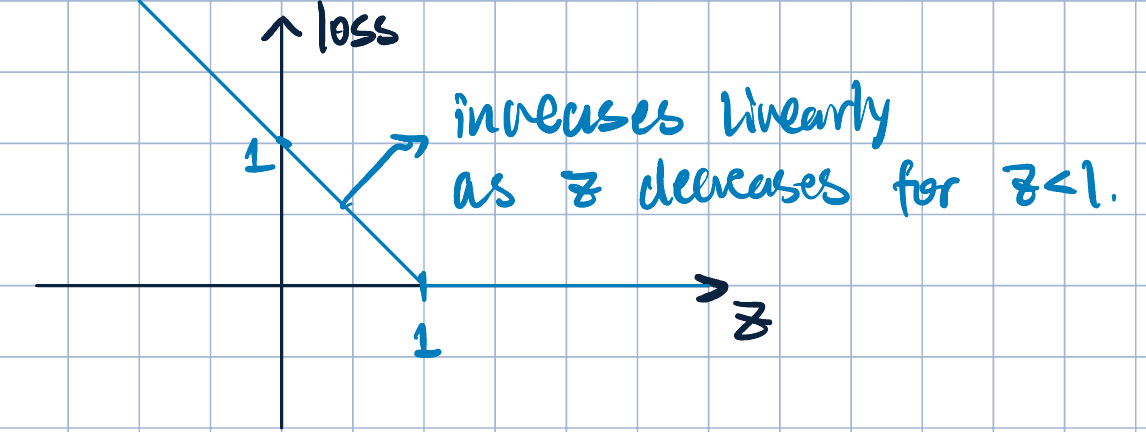 loss
increases linearly
1
as z decreases for z<1.
z
1